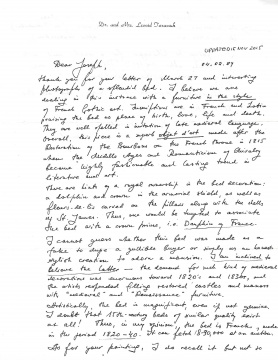 Dr. and Mrs. Lionel
UPDATED IN MAY 2015
04.02.09
Dear Joseph,
Thank you for your letter of March 27 and interesting
photographs of a splendid bed. I believe we are
dealing in this instance with a furniture in the style
of French Gothic art. Inscriptions are in French and Latin
praising the bed as place of birth, love, life and death.
They are well spelled in imitation of late medieval language.
Overall, this piece is a superb objet d'art made after the
Restoration of the Bourbons on the French throne in 1815
when the Middle Ages and Romanticism of Chivalry
became highly fashionable and lasting trend in
literature and art.
There are hints of a royal ownership in the bed decoration:
a dolphin and crown in the armorial shield, as well as
fleurs de lis carved on the pillars along with the shells
of St. James. Thus, one would be tempted to associate
the bed with a crown prince, i.e. Dauphin of France.
I cannot guess whether this bed was made as a
fake to dupe a gullible buyer or simply as an honest
stylish creation to adorn a mansion. I am inclined to
believe the latter – the demand for such kind of medieval
decorations was enormous around 1820's and 1830s, and
the artists responded filling restored castles and manors
with "medieval" and "Renaissance" furniture.
Artistically, the bed is magnificent even if not genuine.
I doubt that 15th-century beds of similar quality exist
at all! Thus, in my opinion, the bed is French, made
in the period 1820-40. It can fetch $90,000 at an auction.
As for your paintings, I do recall it but not so